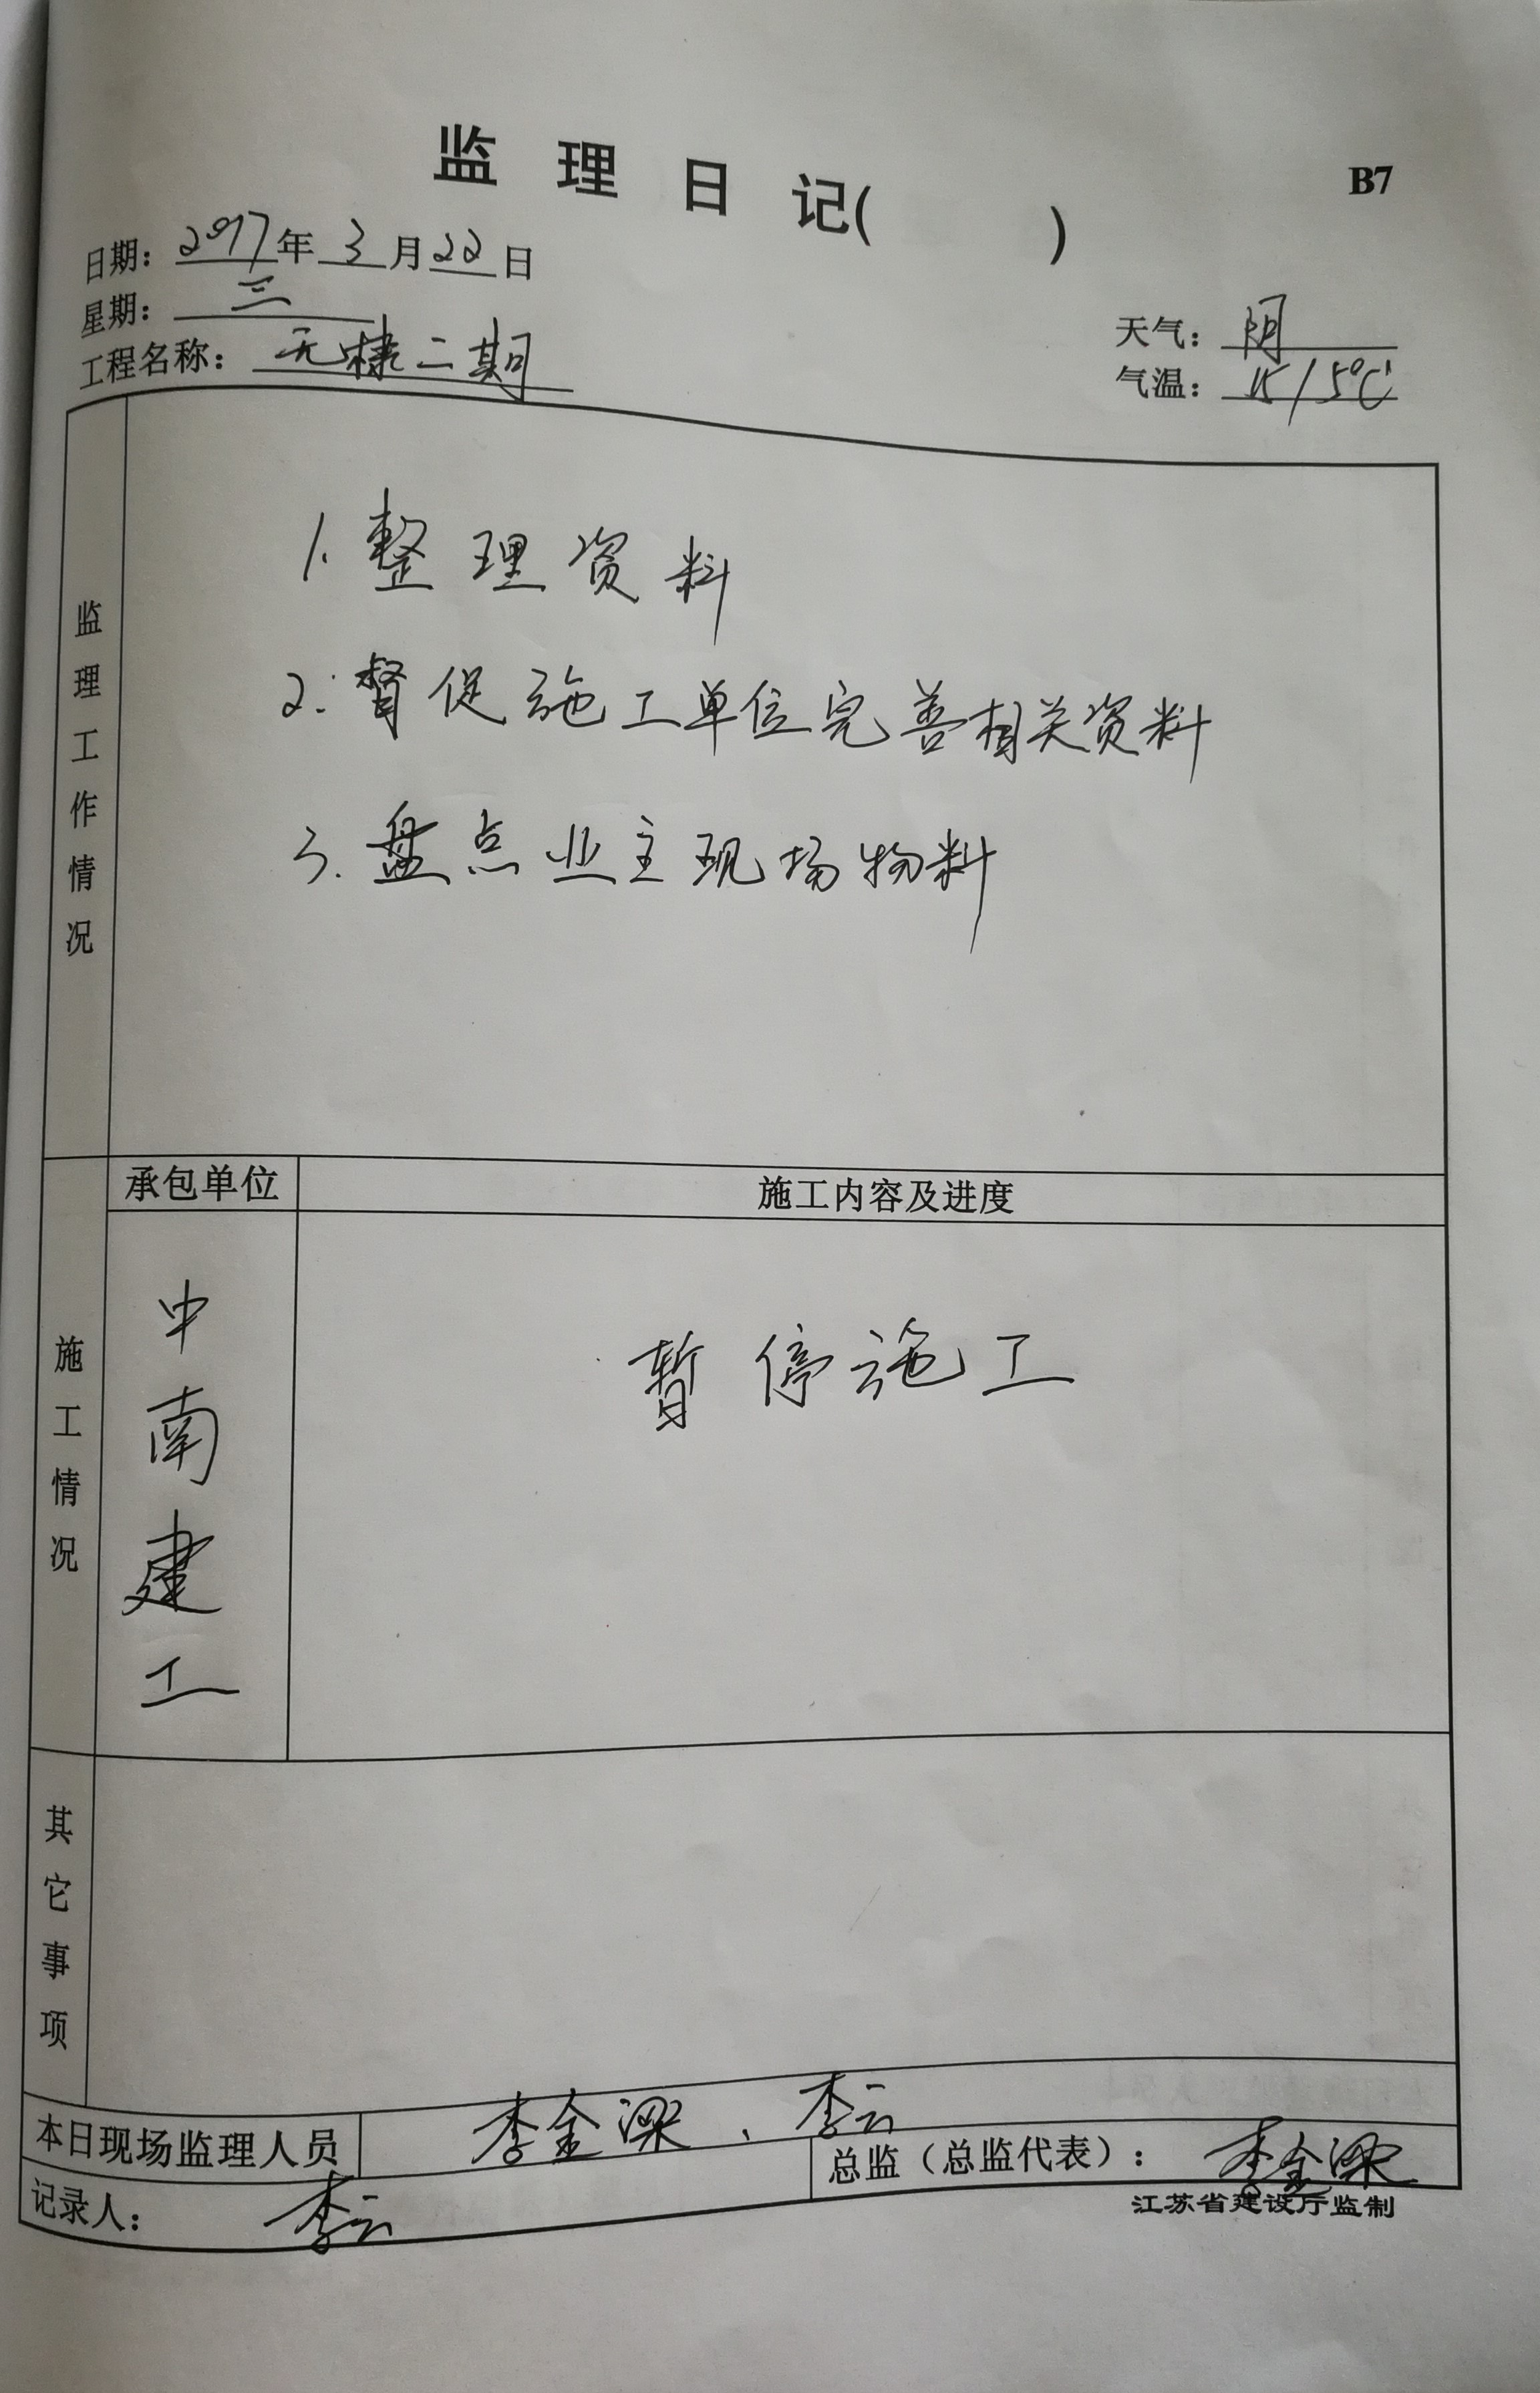 监理日记(　　　)
B7
日期：2017年3月22日
星期：三
天气：阴
工程名称：无棣二期
气温：15/5℃
监理工作情况
1.整理资料
2.督促施工单位完善相关资料
3.盘点业主现场物料
施工情况
承包单位
施工内容及进度
中南建工
暂停施工
其它事项
本日现场监理人员
李金梁、李云
记录人：李云
总监（总监代表）：李金梁
江苏省建设厅监制